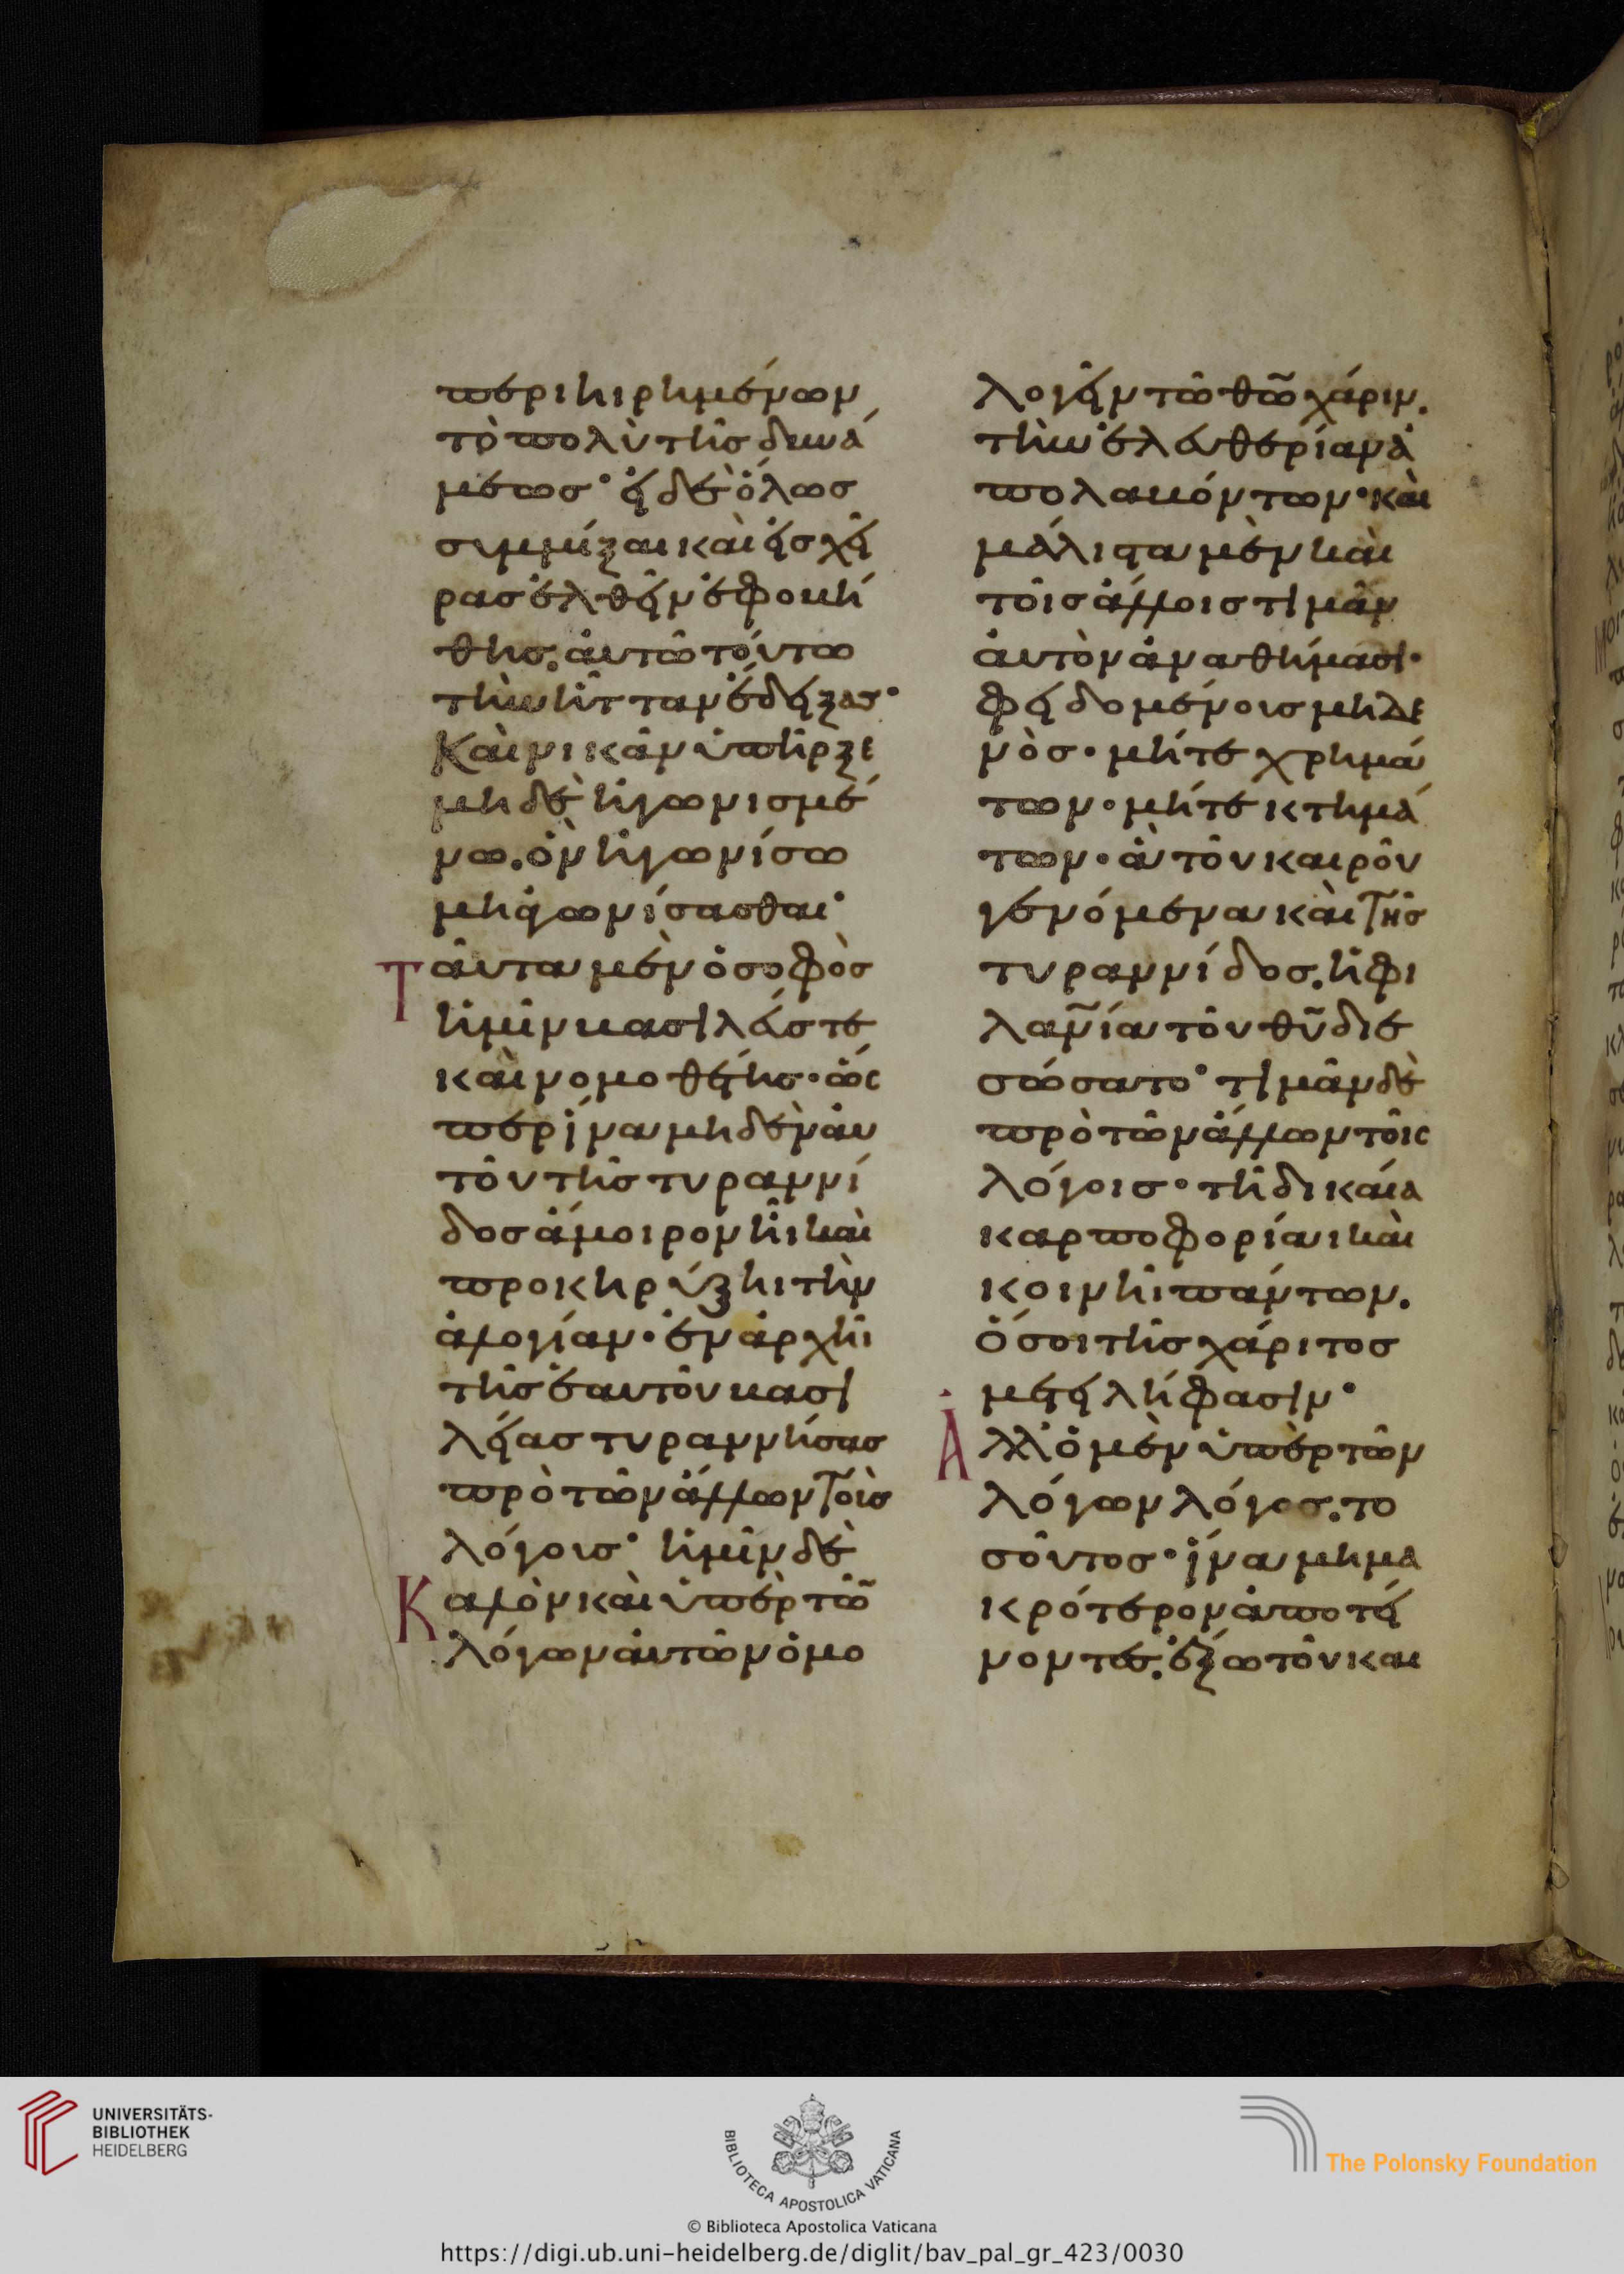 περιηιρημένων
τὸ πολὺ τῆς δυνά
μεως· εἰ δὲ ὅλως
συμμίξαι καὶ εἰς χεῖ
ρας ἐλθεῖν ἐφοβή
θης. ἀυτῶ τούτω
τὴν ἧτταν ἔδειξας·
Καὶ νικᾶν ὑπῆρξε
μηδὲ ἠγωνισμέ
νω. ὃν ἠγωνίσω
μὴ ἀγωνίσασθαι·
Τᾶυτα μὲν ὁ σοφὸς
ἡμῖν βασιλέυς τε
καὶ νομοθέτης· ὥς
περ ἵνα μηδὲν ἀυ
τοῦ τῆς τυραννί
δος ἄμοιρον ἦι καὶ
προκηρύξηι τὴν
ἀλογίαν· ἐν ἀρχῆι
τῆς ἑαυτοῦ βασι
λείας τυραννήσας
πρὸ τῶν ἄλλων τοῖς
λόγοις· ἡμῖν δὲ
Καλὸν καὶ ὑπὲρ τῶ̃
λόγων ἀυτῶν ὁμο
λογεῖν τῶ θῶ̃ χάριν.
τὴν ἐλευθερίαν ἀ
πολαβόντων· καὶ
μάλιστα μὲν καὶ
τοῖς ἄλλοις τιμᾶν
ἀυτὸν ἀναθήμασι·
φειδομένοις μηδε
νὸς· μήτε χρημά
των· μήτε κτημά
των· ἃ τοῦ καιροῦ
γενόμενα καὶ τῆς
τυραννίδος. ἡ φι
λανῖα τοῦ θῦ διε
σώσατο· τιμᾶν δὲ
πρὸ τῶν ἄλλων τοῖς
λόγοις· τῆ δικάια
καρποφορίαι καὶ
κοινῆι πάντων.
ὅσοι τῆς χάριτος
μετειλήφασιν·
Ἀλλ' ὁ μὲν ὑπὲρ τῶν
λόγων λόγος. το
σοῦτος· ἵνα μὴ μα
κρότερον ἀποτεί
νοντες. ἔξω τοῦ και
UNIVERSITÄTS-
BIBLIOTHEK
HEIDELBERG
BIBLIOTECA APOSTOLICA VATICANA
The Polonsky Foundation
© Biblioteca Apostolica Vaticana
https://digi.ub.uni-heidelberg.de/diglit/bav_pal_gr_423/0030